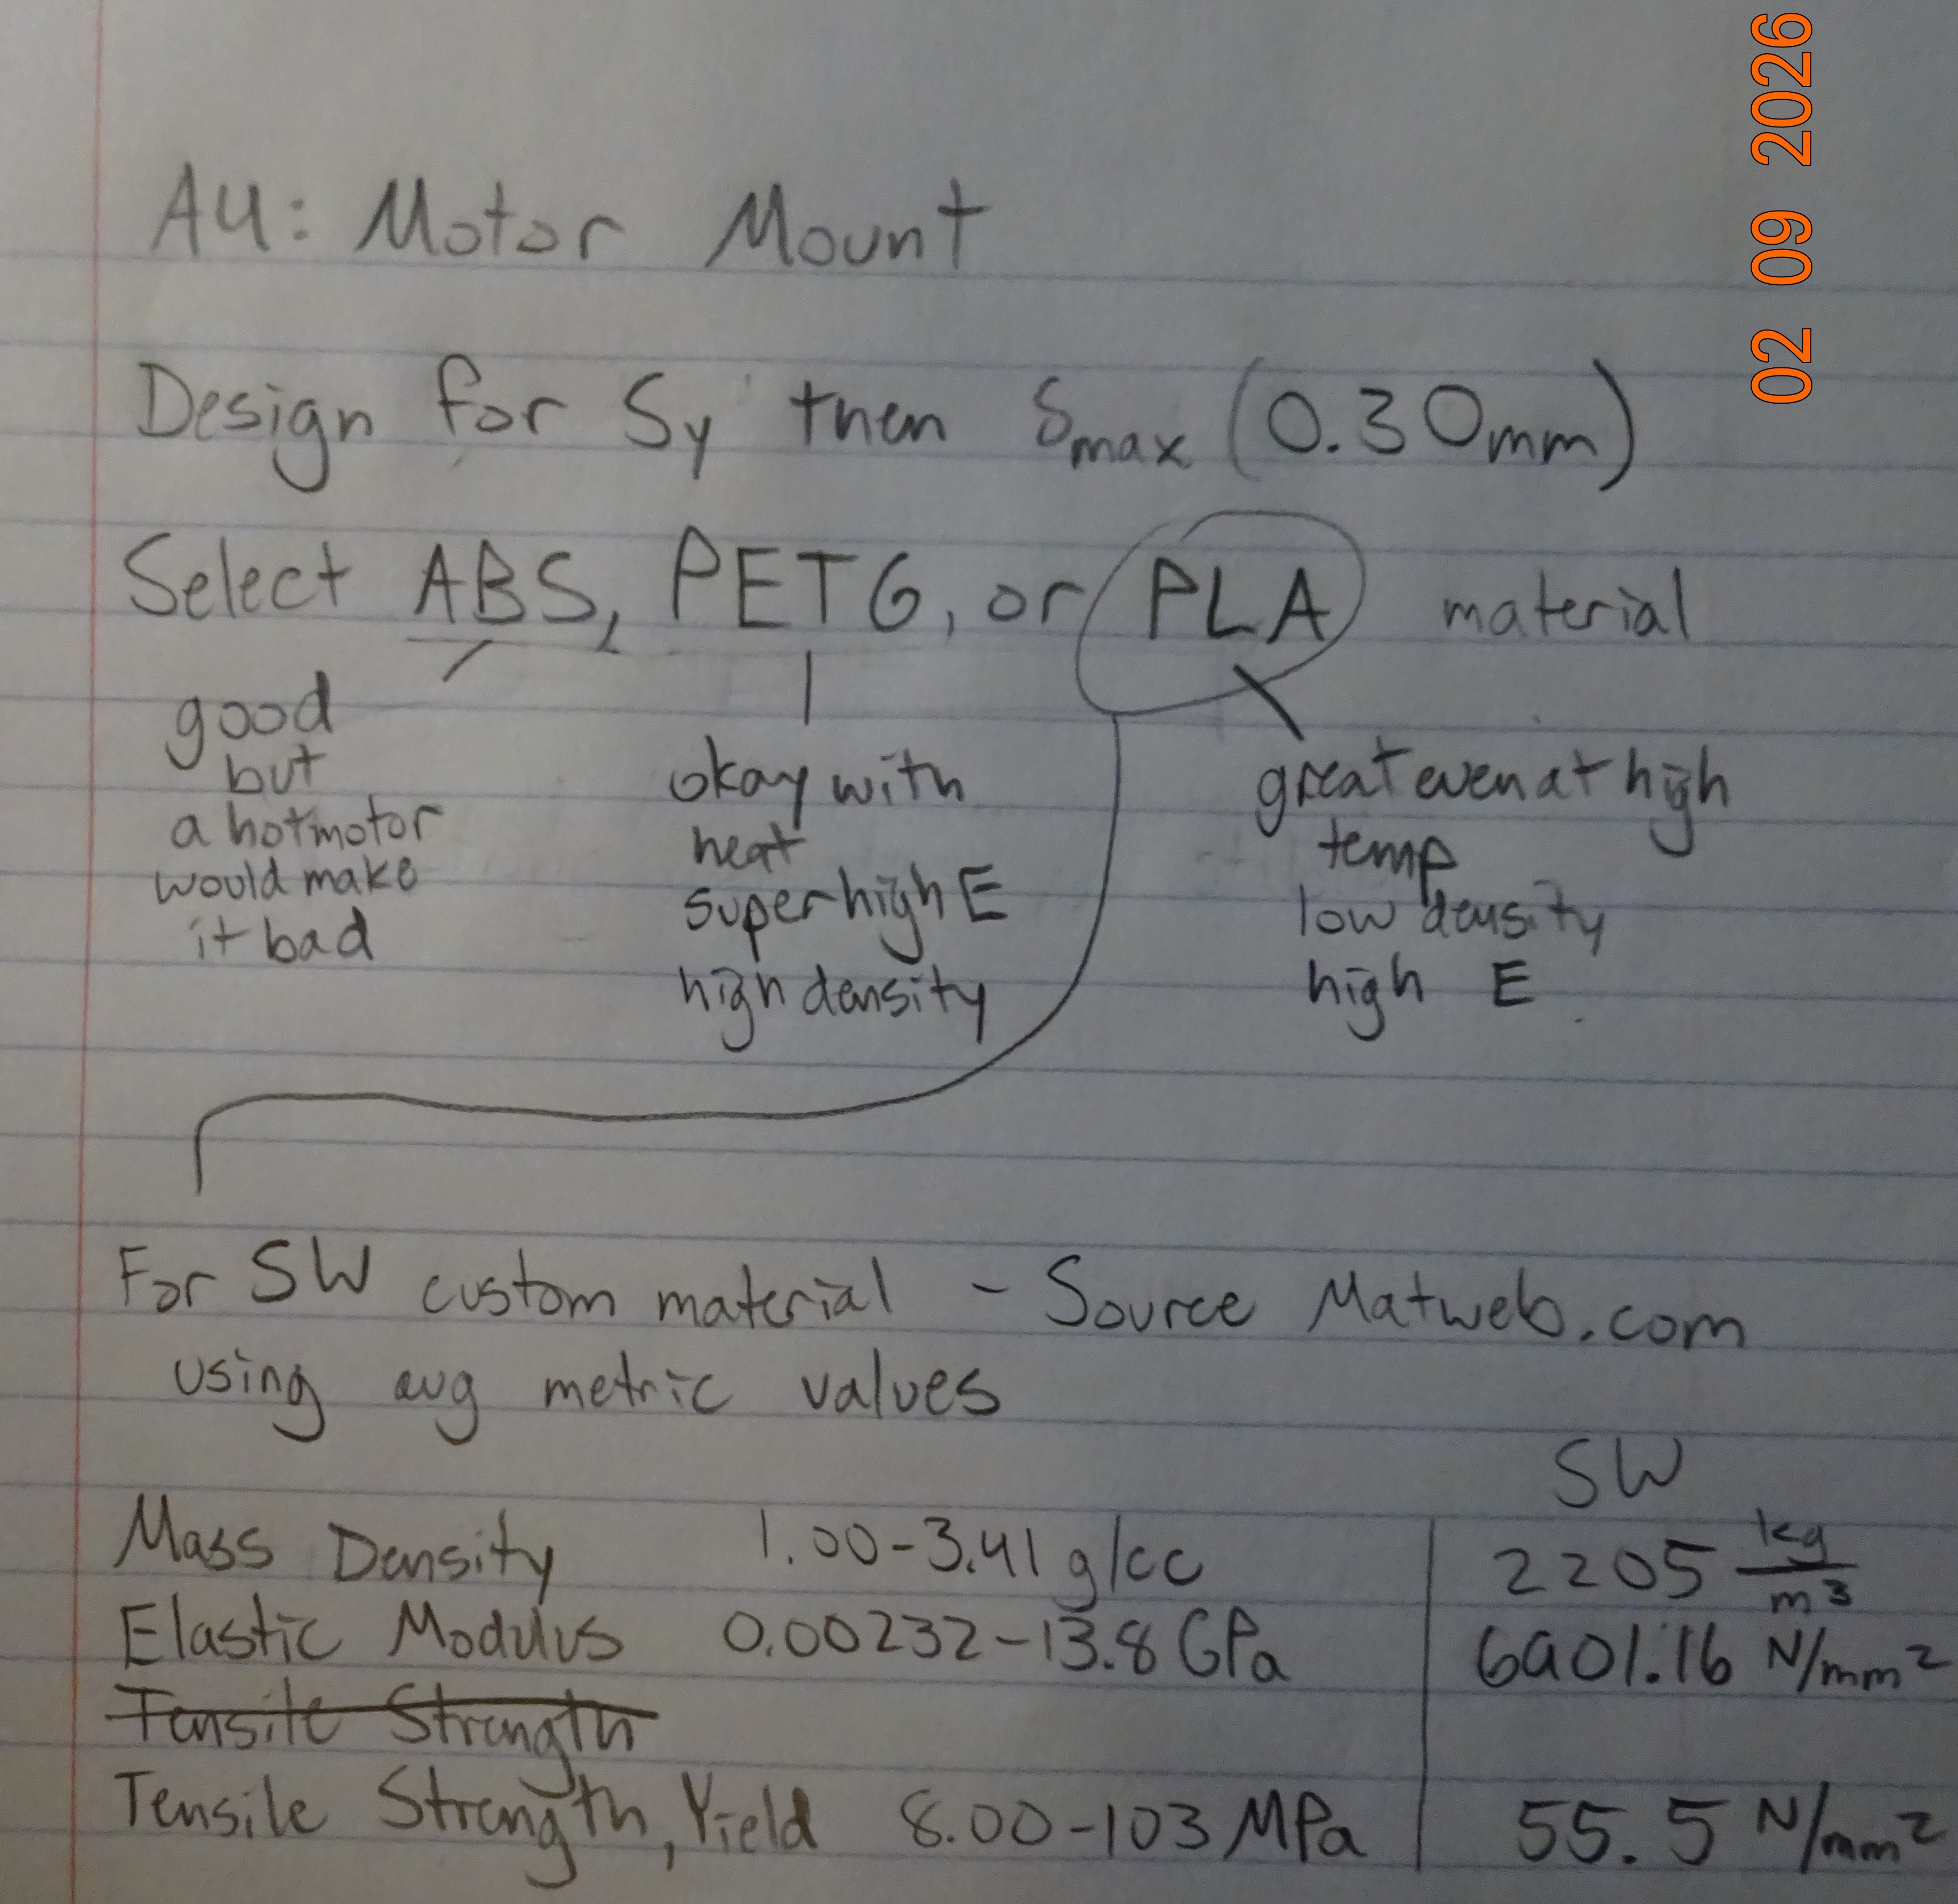 02 09 2026
A4: Motor Mount
Design for Sy then δmax (0.30mm)
Select ABS, PETG, or PLA material
good
but
a hot motor
would make
it bad
okay with
heat
super high E
high density
great even at high
temp
low density
high E
For SW custom material - Source Matweb.com
using avg metric values
SW
Mass Density 1.00-3.41 g/cc 2205 kg/m³
Elastic Modulus 0.00232-13.8 GPa 6901.16 N/mm²
Tensile Strength
Tensile Strength, Yield 8.00-103 MPa 55.5 N/mm²